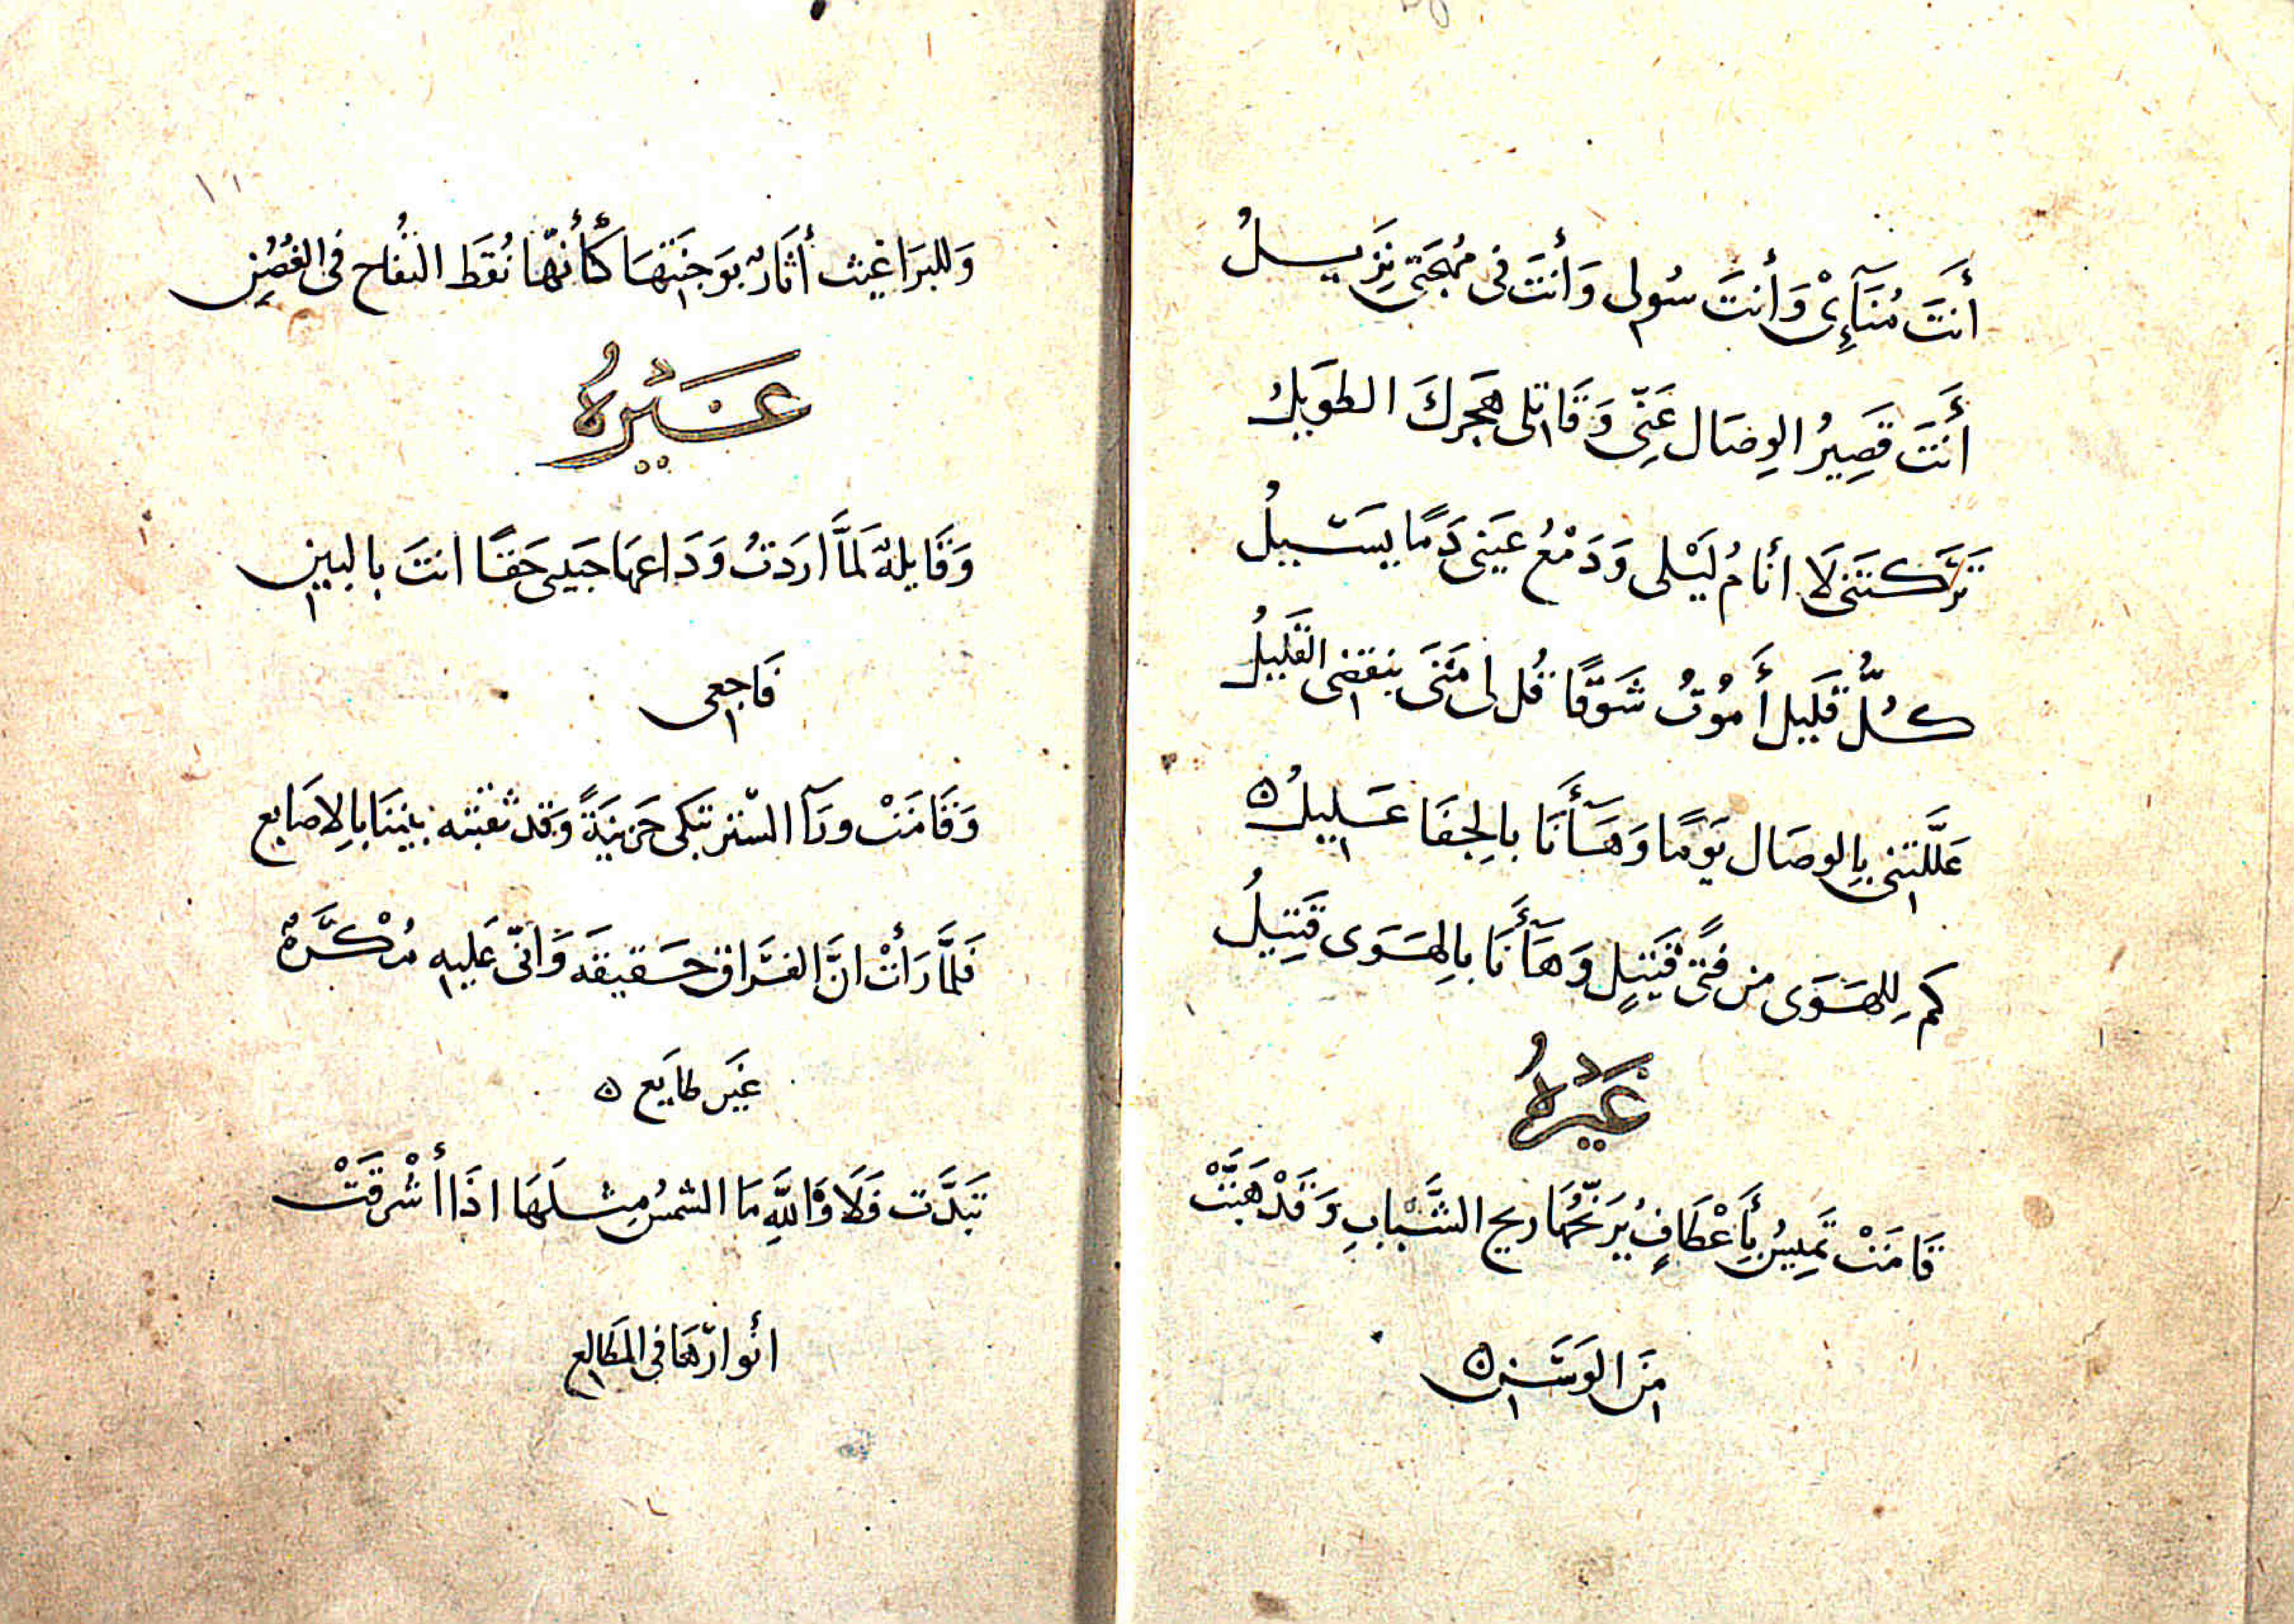 أَنتَ مُنَآءِىْ وَأَنتَ سُولى وَأَنتَ فى مُهجَتى نَزِيلُ
أَنتَ قَصِيرُ الوِصَال عَنِّى وَقَاتلى هَجرِكَ الطويلُ
تَرَكتَنى لَا أنَامُ لَيْلى وَدَمْعُ عَينى دَمًا يَسيلُ
كُلُّ قَليل أَمُوتُ شَوقًا قُل لى مَتَى ينقضى القَليلُ
عَلَّلتَنى بِالوصَال يَومًا وَهَآأَنَا بِالجِفَا عَليلُ ه
كم لِلهَوَى من فتًى قَتيلٍ وَهَآأَنَا بالهَوَى قَتِيلُ
غَيْرُهُ
قَامَتْ تَمِيسُ بِأَعْطَافٍ يُرَنّحُهَا ريح الشَّبَابِ وَقَدْ هَبَّتْ
مَن الوَسَن ه
١١
وَللبرَاغيث أثَارٌ بوَجنَتهَا كَأَنّهَا نُقَط التفُاح فى الغُصُنِ
غَيْرُهُ
وَقَايلةٌ لَمَّا ارَدَتُ وَدَاعهَا حَبيبى حَقًا انتَ بالبين
فَاجعى
وَقَامَتْ ورَآ السّتر تَبكى حَزينَةً وَقَد ثقبَته بَينَنَا بِالاصَابع
فَلمَّا رَأَتْ انَّ الفرَاق حَقيقَه وَانّى عَليه مُكْرَهٌ
غَير طايع ه
تَبَدَّت فَلَا وَاللهِ مَا الشمسُ مِثلَهَا اذَا أَشْرقَتْ
انوارهَا فى المطَالع